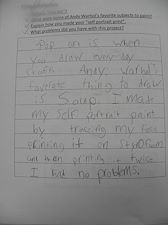 What were some of Andy Warhol's favorite subjects to paint?
Explain how you made your "self portrait print".
What problems did you have with this project?
Pop art is when
you draw every day
stuff. Andy Warhol's
favorite thing to draw
is Soup. I made
my self portrait paint
by tracing my face
printing it on Styrofoam
and then printing twice.
I had no problems.